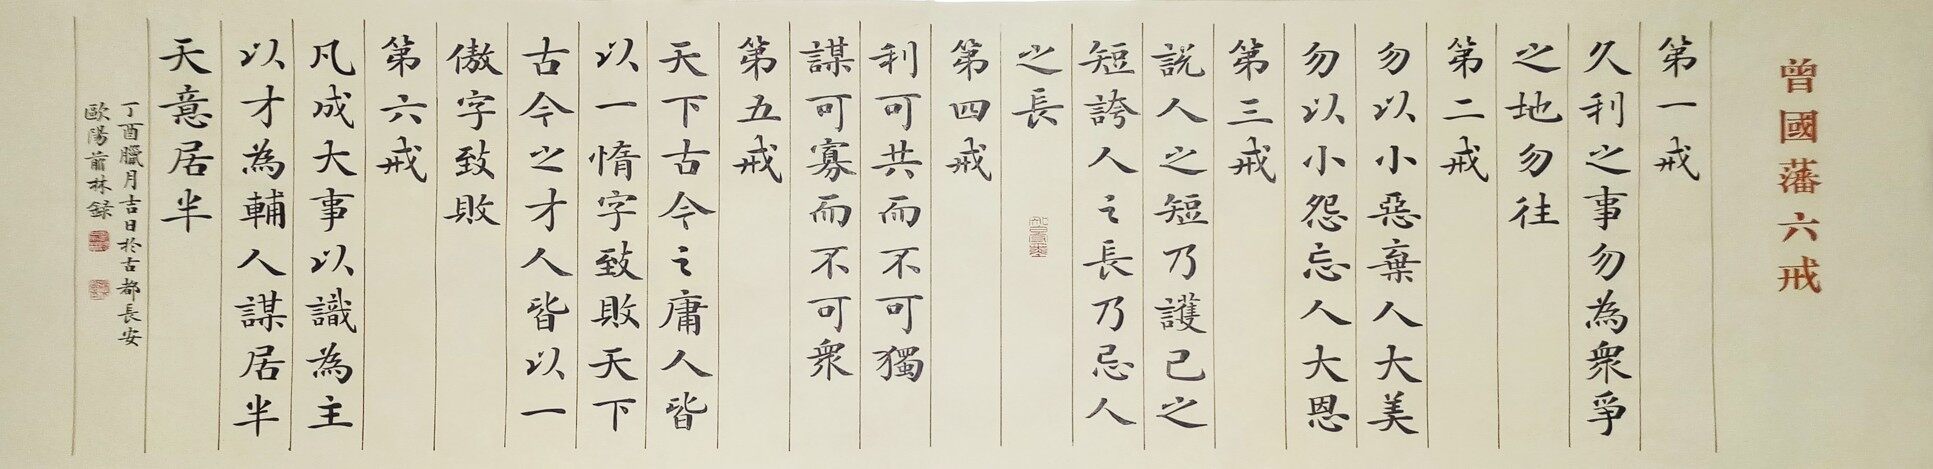 曾國藩六戒
第一戒
久利之事勿為衆爭
之地勿往
第二戒
勿以小惡棄人大美
勿以小怨忘人大恩
第三戒
説人之短乃護己之
短誇人之長乃忌人
之長
第四戒
利可共而不可獨
謀可寡而不可衆
第五戒
天下古今之庸人皆
以一惰字致敗天下
古今之才人皆以一
傲字致敗
第六戒
凡成大事以識為主
以才為輔人謀居半
天意居半
丁酉臘月吉日於古都長安
歐陽前林錄